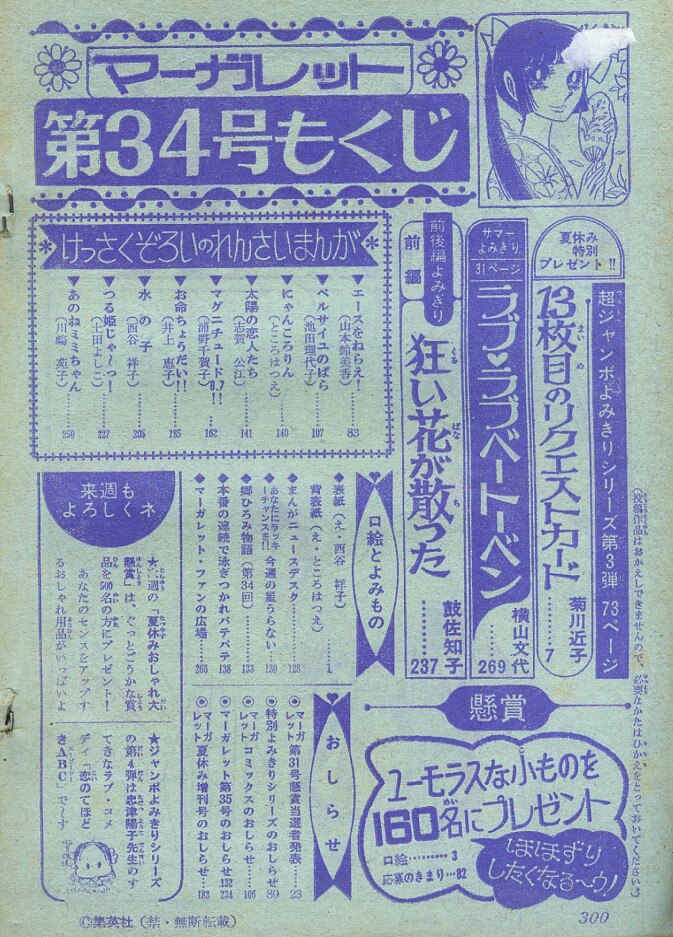 マーガレット
第34号もくじ
夏休み
特別
プレゼント!!
超ジャンボよみきりシリーズ第3弾 73ページ
13枚目のリクエストカード
菊川近子
7
サマー
よみきり
31ページ
ラブ♥ラブベートーベン
横山文代
269
前後編よみきり
前編
狂い花が散った
鼓佐知子
237
けっさくぞろいのれんさいまんが
▼エースをねらえ!
(山本鈴美香)
83
▼ベルサイユのばら
(池田理代子)
107
▼にゃんころりん
(ところはつえ)
140
▼太陽の恋人たち
(志賀公江)
141
▼マグニチュード8.7!!
(浦野千賀子)
162
▼お命ちょうだい!!
(井上恵子)
185
▼水の子
(西谷祥子)
205
▼つる姫じゃ〜っ!
(土田よしこ)
227
▼あのねミミちゃん
(川崎苑子)
250
♥口絵とよみもの♥
◆表紙(え・西谷祥子)
背表紙(え・ところはつえ)
1
◆まんがニュースデスク
128
◆あなたにラッキーチャンスを!! 今週の星うらない
130
◆郷ひろみ物語(第34回)
133
◆本番の連続で泳ぎつかれバテバテ
138
◆マーガレット・ファンの広場
266
♥おしらせ♥
◉マーガレット第31号懸賞当選者発表
23
◉特別よみきりシリーズのおしらせ
80
◉マーガレットコミックスのおしらせ
106
◉マーガレット第35号のおしらせ
132
234
◉マーガレット夏休み増刊号のおしらせ
183
来週もよろしくネ
★次週の「夏休みおしゃれ大
懸賞」は、ぐっとごうかな賞
品を500名の方にプレゼント!
あなたのセンスをアップす
るおしゃれ用品がいっぱいよ
★ジャンボよみきりシリーズ
の第4弾は忠津陽子先生のす
てきなラブ・コメ
ディ「恋のてほど
きABC」で〜す
懸賞
ユーモラスな小ものを
160名にプレゼント
口絵………3
応募のきまり…82
ほほずり
したくなる〜ウ!
(投稿作品はおかえしできませんので、必要なかたはひかえをとっておいてください。)
©集英社(禁・無断転載)
300